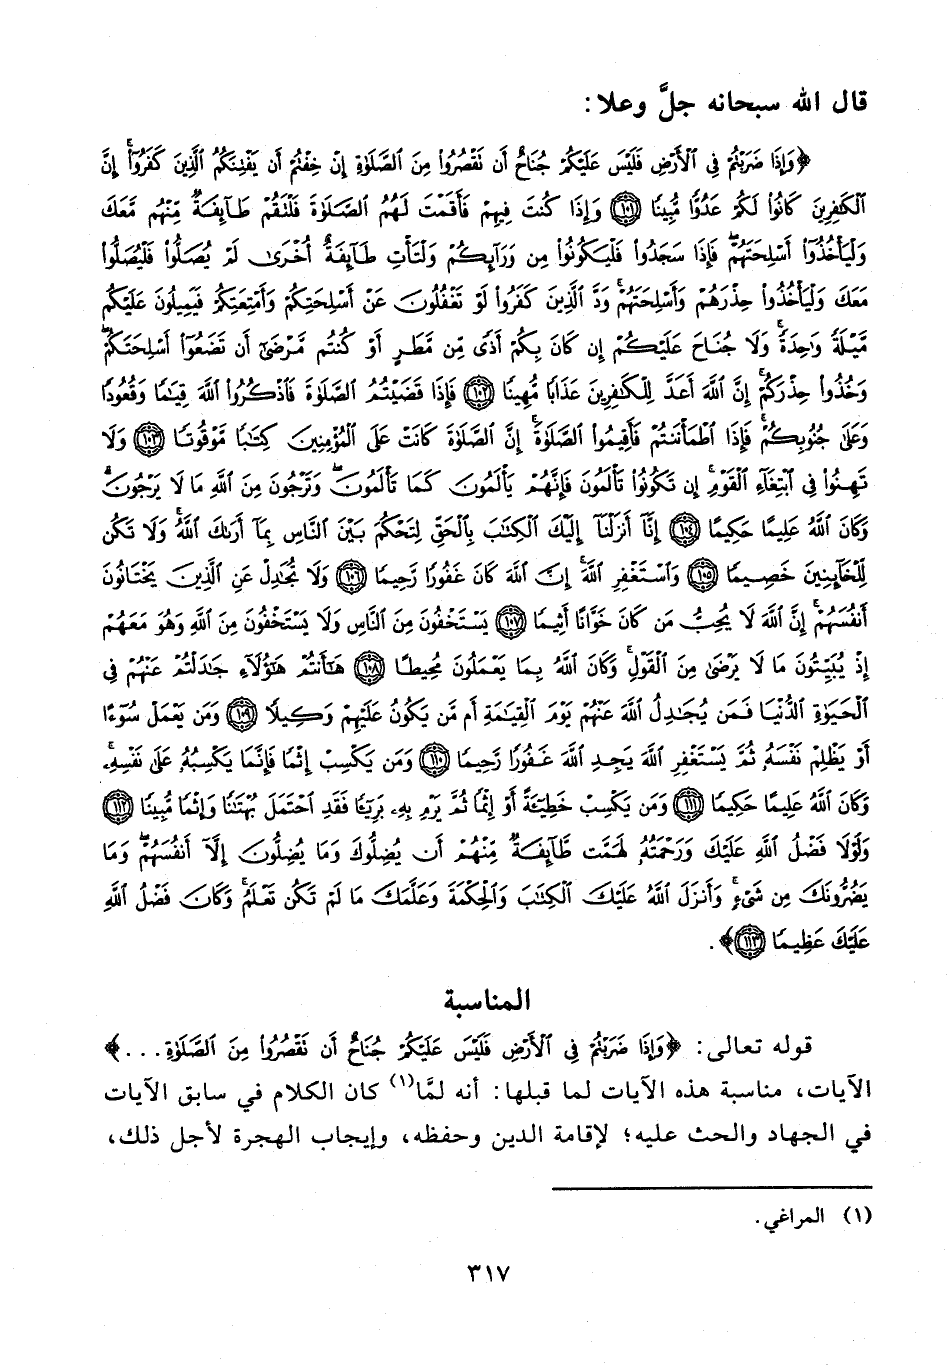 قال الله سبحانه جلَّ وعلا:
﴿وَإِذَا ضَرَبْتُمْ فِي ٱلْأَرْضِ فَلَيْسَ عَلَيْكُمْ جُنَاحٌ أَن تَقْصُرُوا۟ مِنَ ٱلصَّلَوٰةِ إِنْ خِفْتُمْ أَن يَفْتِنَكُمُ ٱلَّذِينَ كَفَرُوٓا۟ۚ إِنَّ
ٱلْكَٰفِرِينَ كَانُوا۟ لَكُمْ عَدُوًّا مُّبِينًا ١٠١ وَإِذَا كُنتَ فِيهِمْ فَأَقَمْتَ لَهُمُ ٱلصَّلَوٰةَ فَلْتَقُمْ طَآئِفَةٌ مِّنْهُم مَّعَكَ
وَلْيَأْخُذُوٓا۟ أَسْلِحَتَهُمْۖ فَإِذَا سَجَدُوا۟ فَلْيَكُونُوا۟ مِن وَرَآئِكُمْ وَلْتَأْتِ طَآئِفَةٌ أُخْرَىٰ لَمْ يُصَلُّوا۟ فَلْيُصَلُّوا۟
مَعَكَ وَلْيَأْخُذُوا۟ حِذْرَهُمْ وَأَسْلِحَتَهُمْۗ وَدَّ ٱلَّذِينَ كَفَرُوا۟ لَوْ تَغْفُلُونَ عَنْ أَسْلِحَتِكُمْ وَأَمْتِعَتِكُمْ فَيَمِيلُونَ عَلَيْكُم
مَّيْلَةً وَٰحِدَةًۚ وَلَا جُنَاحَ عَلَيْكُمْ إِن كَانَ بِكُمْ أَذًى مِّن مَّطَرٍ أَوْ كُنتُم مَّرْضَىٰٓ أَن تَضَعُوٓا۟ أَسْلِحَتَكُمْۖ
وَخُذُوا۟ حِذْرَكُمْۗ إِنَّ ٱللَّهَ أَعَدَّ لِلْكَٰفِرِينَ عَذَابًا مُّهِينًا ١٠٢ فَإِذَا قَضَيْتُمُ ٱلصَّلَوٰةَ فَٱذْكُرُوا۟ ٱللَّهَ قِيَٰمًا وَقُعُودًا
وَعَلَىٰ جُنُوبِكُمْۚ فَإِذَا ٱطْمَأْنَنتُمْ فَأَقِيمُوا۟ ٱلصَّلَوٰةَۚ إِنَّ ٱلصَّلَوٰةَ كَانَتْ عَلَى ٱلْمُؤْمِنِينَ كِتَٰبًا مَّوْقُوتًا ١٠٣ وَلَا
تَهِنُوا۟ فِي ٱبْتِغَآءِ ٱلْقَوْمِۖ إِن تَكُونُوا۟ تَأْلَمُونَ فَإِنَّهُمْ يَأْلَمُونَ كَمَا تَأْلَمُونَۖ وَتَرْجُونَ مِنَ ٱللَّهِ مَا لَا يَرْجُونَۗ
وَكَانَ ٱللَّهُ عَلِيمًا حَكِيمًا ١٠٤ إِنَّآ أَنزَلْنَآ إِلَيْكَ ٱلْكِتَٰبَ بِٱلْحَقِّ لِتَحْكُمَ بَيْنَ ٱلنَّاسِ بِمَآ أَرَىٰكَ ٱللَّهُۚ وَلَا تَكُن
لِّلْخَآئِنِينَ خَصِيمًا ١٠٥ وَٱسْتَغْفِرِ ٱللَّهَۖ إِنَّ ٱللَّهَ كَانَ غَفُورًا رَّحِيمًا ١٠٦ وَلَا تُجَٰدِلْ عَنِ ٱلَّذِينَ يَخْتَانُونَ
أَنفُسَهُمْۚ إِنَّ ٱللَّهَ لَا يُحِبُّ مَن كَانَ خَوَّانًا أَثِيمًا ١٠٧ يَسْتَخْفُونَ مِنَ ٱلنَّاسِ وَلَا يَسْتَخْفُونَ مِنَ ٱللَّهِ وَهُوَ مَعَهُمْ
إِذْ يُبَيِّتُونَ مَا لَا يَرْضَىٰ مِنَ ٱلْقَوْلِۚ وَكَانَ ٱللَّهُ بِمَا يَعْمَلُونَ مُحِيطًا ١٠٨ هَٰٓأَنتُمْ هَٰٓؤُلَآءِ جَٰدَلْتُمْ عَنْهُمْ فِي
ٱلْحَيَوٰةِ ٱلدُّنْيَا فَمَن يُجَٰدِلُ ٱللَّهَ عَنْهُمْ يَوْمَ ٱلْقِيَٰمَةِ أَم مَّن يَكُونُ عَلَيْهِمْ وَكِيلًا ١٠٩ وَمَن يَعْمَلْ سُوٓءًا
أَوْ يَظْلِمْ نَفْسَهُۥ ثُمَّ يَسْتَغْفِرِ ٱللَّهَ يَجِدِ ٱللَّهَ غَفُورًا رَّحِيمًا ١١٠ وَمَن يَكْسِبْ إِثْمًا فَإِنَّمَا يَكْسِبُهُۥ عَلَىٰ نَفْسِهِۦۚ
وَكَانَ ٱللَّهُ عَلِيمًا حَكِيمًا ١١١ وَمَن يَكْسِبْ خَطِيٓـَٔةً أَوْ إِثْمًا ثُمَّ يَرْمِ بِهِۦ بَرِيٓـًٔا فَقَدِ ٱحْتَمَلَ بُهْتَٰنًا وَإِثْمًا مُّبِينًا ١١٢
وَلَوْلَا فَضْلُ ٱللَّهِ عَلَيْكَ وَرَحْمَتُهُۥ لَهَمَّت طَّآئِفَةٌ مِّنْهُمْ أَن يُضِلُّوكَ وَمَا يُضِلُّونَ إِلَّآ أَنفُسَهُمْۖ وَمَا
يَضُرُّونَكَ مِن شَيْءٍۚ وَأَنزَلَ ٱللَّهُ عَلَيْكَ ٱلْكِتَٰبَ وَٱلْحِكْمَةَ وَعَلَّمَكَ مَا لَمْ تَكُن تَعْلَمُۚ وَكَانَ فَضْلُ ٱللَّهِ
عَلَيْكَ عَظِيمًا ١١٣﴾.
المناسبة
قوله تعالى: ﴿وَإِذَا ضَرَبْتُمْ فِي ٱلْأَرْضِ فَلَيْسَ عَلَيْكُمْ جُنَاحٌ أَن تَقْصُرُوا۟ مِنَ ٱلصَّلَوٰةِ...﴾
الآيات، مناسبة هذه الآيات لما قبلها: أنه لمَّا(١) كان الكلام في سابق الآيات
في الجهاد والحث عليه؛ لإقامة الدين وحفظه، وإيجاب الهجرة لأجل ذلك،
(١) المراغي.
٣١٧